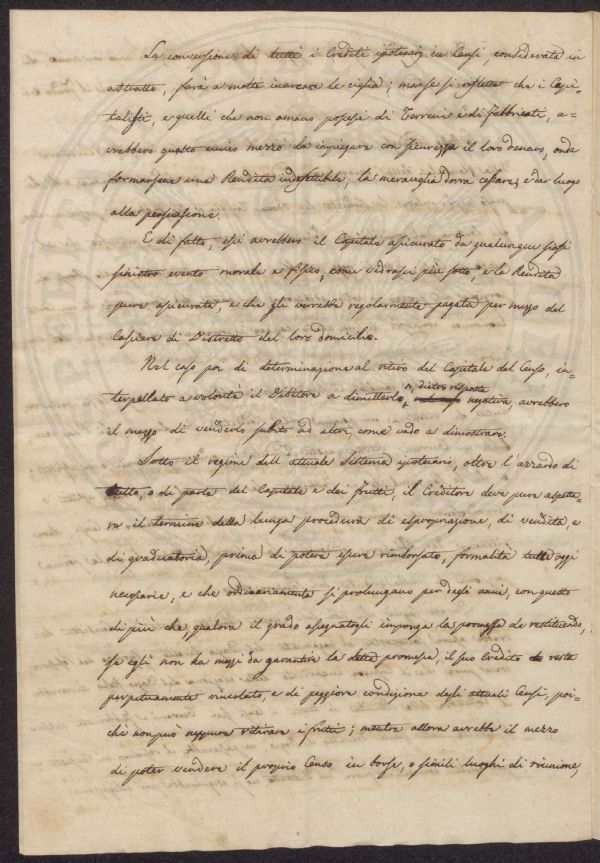 La conversione di tutti i Crediti ipotecarj in Censi, considerata in
astratto, farà a molti inarcare le ciglia; ma se si riflette che i Capi-
talisti, e quelli che non amano possessi di Terreni e di Fabbricati, a-
vrebbero questo unico mezzo da impiegare con sicurezza il loro denaro, onde
formarsene una Rendita indefettibile, la meraviglia dovrà cessare, e dar luogo
alla persuasione.
E di fatto, essi avrebbero il Capitale assicurato da qualunque siasi
sinistro evento morale e fisico, come vedrassi più sotto, e la Rendita
pure assicurata, e che gli verrebbe regolarmente pagata per mezzo del
Cassiere di Distretto del loro domicilio.
Nel caso poi di determinazione al ritiro del Capitale del Censo, in-
terpellato a volontà il Debitore a dimetterlo, dietro risposta negativa, avrebbero
il mezzo di venderlo subito ad altri come vado a dimostrare.
Sotto il regime dell'attuale Sistema ipotecario, oltre l'azzardo di
tutto, o di parte del Capitale e dei frutti, il Creditore deve pure aspetta-
re il termine della lunga procedura di espropriazione, di vendita, e
di graduatoria, prima di potere essere rimborsato, formalità tutte oggi
necessarie, e che ordinariamente si prolungano per degli anni, con questo
di più che, qualora il grado assegnatogli imponga la promessa de restituendo,
se egli non ha mezzi da garantire la detta promessa, il suo Credito resta
perpetuamente vincolato, e di peggiore condizione degli attuali Censi, poi-
chè non può neppure ritirare i frutti; mentre allora avrebbe il mezzo
di poter vendere il proprio Censo in borse, o simili luoghi di riunione,